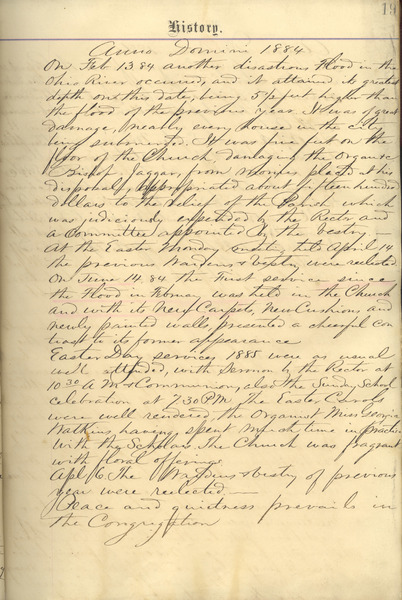 19
History.
Anno Domini 1884
On Feb 13.84 another disastrous Flood in the
Ohio River occurred, and it attained its greatest
depth on this date, being 5½ feet higher than
the flood of the previous year. It was of great
damage, nearly every house in the city
being submerged. It was five feet on the
floor of the Church, damaging the Organ &c
Bishop Jaggar, from monies placed at his
disposal, appropriated about fifteen hundred
dollars to the relief of the Parish which
was judiciously expended by the Rector and
a Committee appointed by the Vestry —
At the Easter Monday April 14
the previous Wardens & Vestry were reelected
On June 14, 84 the First service since
the Flood in February was held in the Church
and with its New Carpets, New Cushions and
newly painted walls, presented a cheerful con
trast to its former appearance
Easter Day services 1885 were as usual
well attended, with Sermon by the Rector at
10 30 A M & Communion, also the Sunday School
celebration at 7.30 PM The Easter Carols
were well rendered the Organist Miss
Watkins having spent much time in practice
with the Scholars. The Church was fragrant
with floral offerings
Apl 6. The Wardens & Vestry of previous
year were reelected —
Peace and quietness prevails in
the Congregation